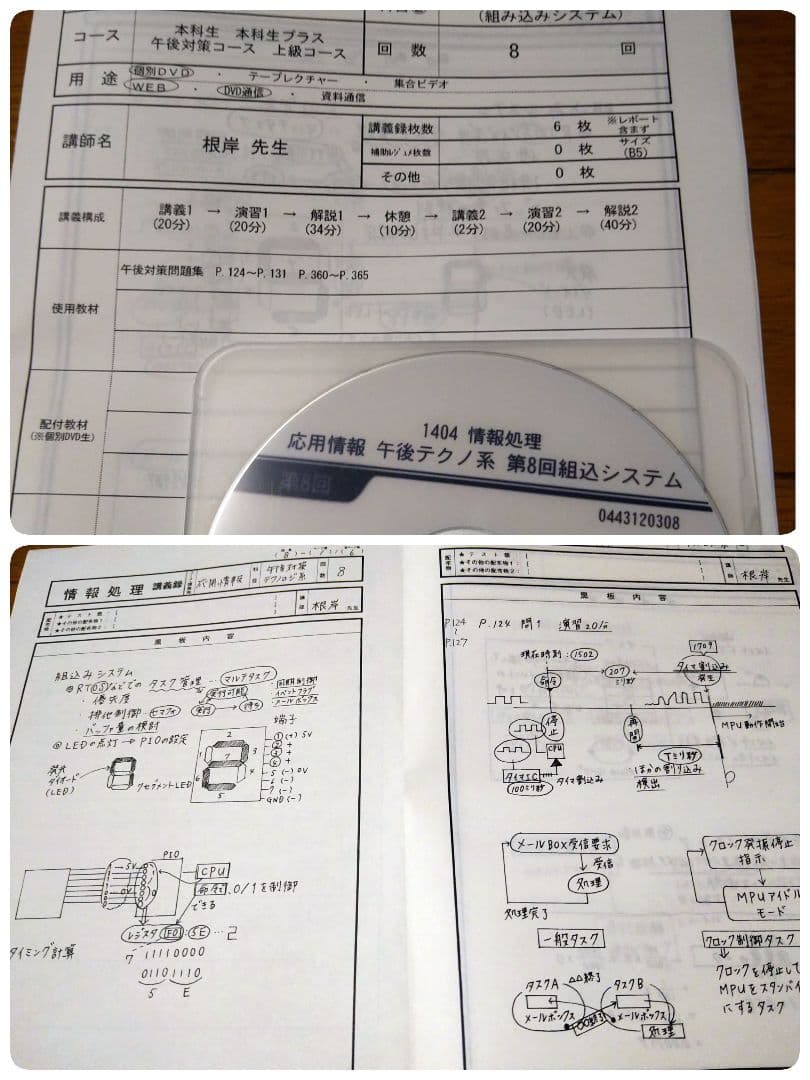 (組み込みシステム)
コース
本科生 本科生プラス
午後対策コース 上級コース
回 数
8
回
用 途
個別DVD ・ テープレクチャー ・ 集合ビデオ
WEB ・ DVD通信 ・ 資料通信
講師名
根岸 先生
講義録枚数
6 枚
※レポート含まず
補助レジュメ枚数
0 枚
サイズ
(B5)
その他
0 枚
講義構成
講義1 → 演習1 → 解説1 → 休憩 → 講義2 → 演習2 → 解説2
(20分) (20分) (34分) (10分) (2分) (20分) (40分)
使用教材
午後対策問題集 P.124~P.131 P.360~P.365
配付教材
(※個別DVD生)
1404 情報処理
応用情報 午後テクノ系 第8回組込システム
第8回
0443120308
情報処理 講義録
応用情報
科目
午後対策
テクノロジ系
回数
8
講師
根岸 先生
配布物
★テスト類
★その他の配布物1:
★その他の配布物2:
黒板内容
組込みシステム
◎RTOSなどでの タスク管理 … マルチタスク
・優先度
・排他制御 セマフォ
・バッファ量の検討
実行可能
実行
待ち
同期制御
イベントフラグ
メールボックス
◎LEDの点灯 → PIOの設定
発光
ダイオード
(LED)
7セグメントLED
端子
1 (+) 5V
2 +
3 +
4 +
5 (-) 0V
6 (-)
7 (-)
GND (-)
PIO
5V
0V
CPU
命令 0/1を制御
できる
レジスタ FO : 5E … 2
タイミング計算
7 11110000
01101110
5 E
配布物
★テスト類
★その他の配布物1:
★その他の配布物2:
根岸
黒板内容
P.124
~
P.127
P.124 問1 演習20分
現在時刻:1502
1709
207
ミリ秒
タイマ割込み
発生
命令
停止
再開
MPU動作開始
CPU
タイマIC
100ミリ秒
タイマ割込み
Tミリ秒
ほかの割り込み
検出
メールBOX受信要求
受信
処理
処理完了
一般タスク
クロック発振停止
指示
MPUアイドル
モード
クロック制御タスク
クロックを停止して
MPUをスタンバイ
にするタスク
タスクA
△△終了
タスクB
メールボックス
○○終了
メールボックス
処理